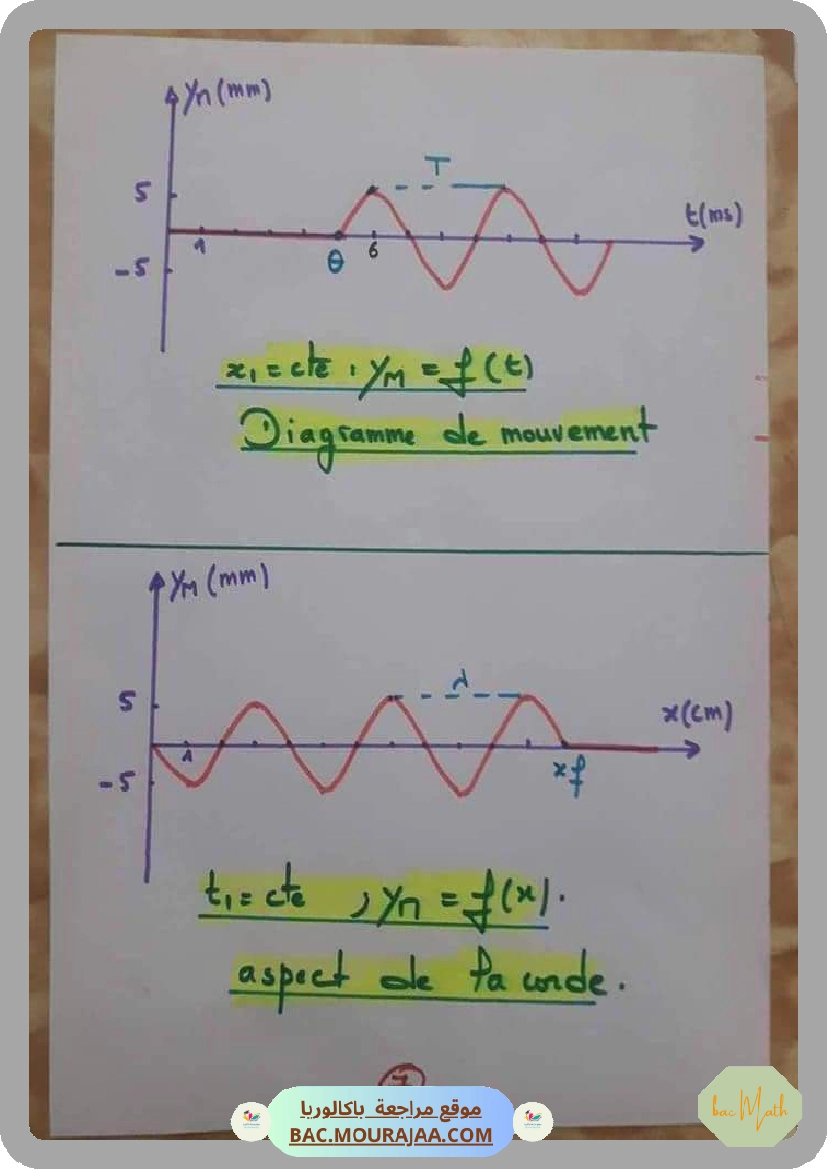 yM (mm)
T
5
t(ms)
1
θ
6
-5
x₁ = cte , yM = f(t)
Diagramme de mouvement
yM (mm)
λ
5
x(cm)
1
xf
-5
t₁ = cte , yM = f(x).
aspect de la corde.
7
موقع مراجعة باكالوريا
BAC.MOURAJAA.COM
bac Math